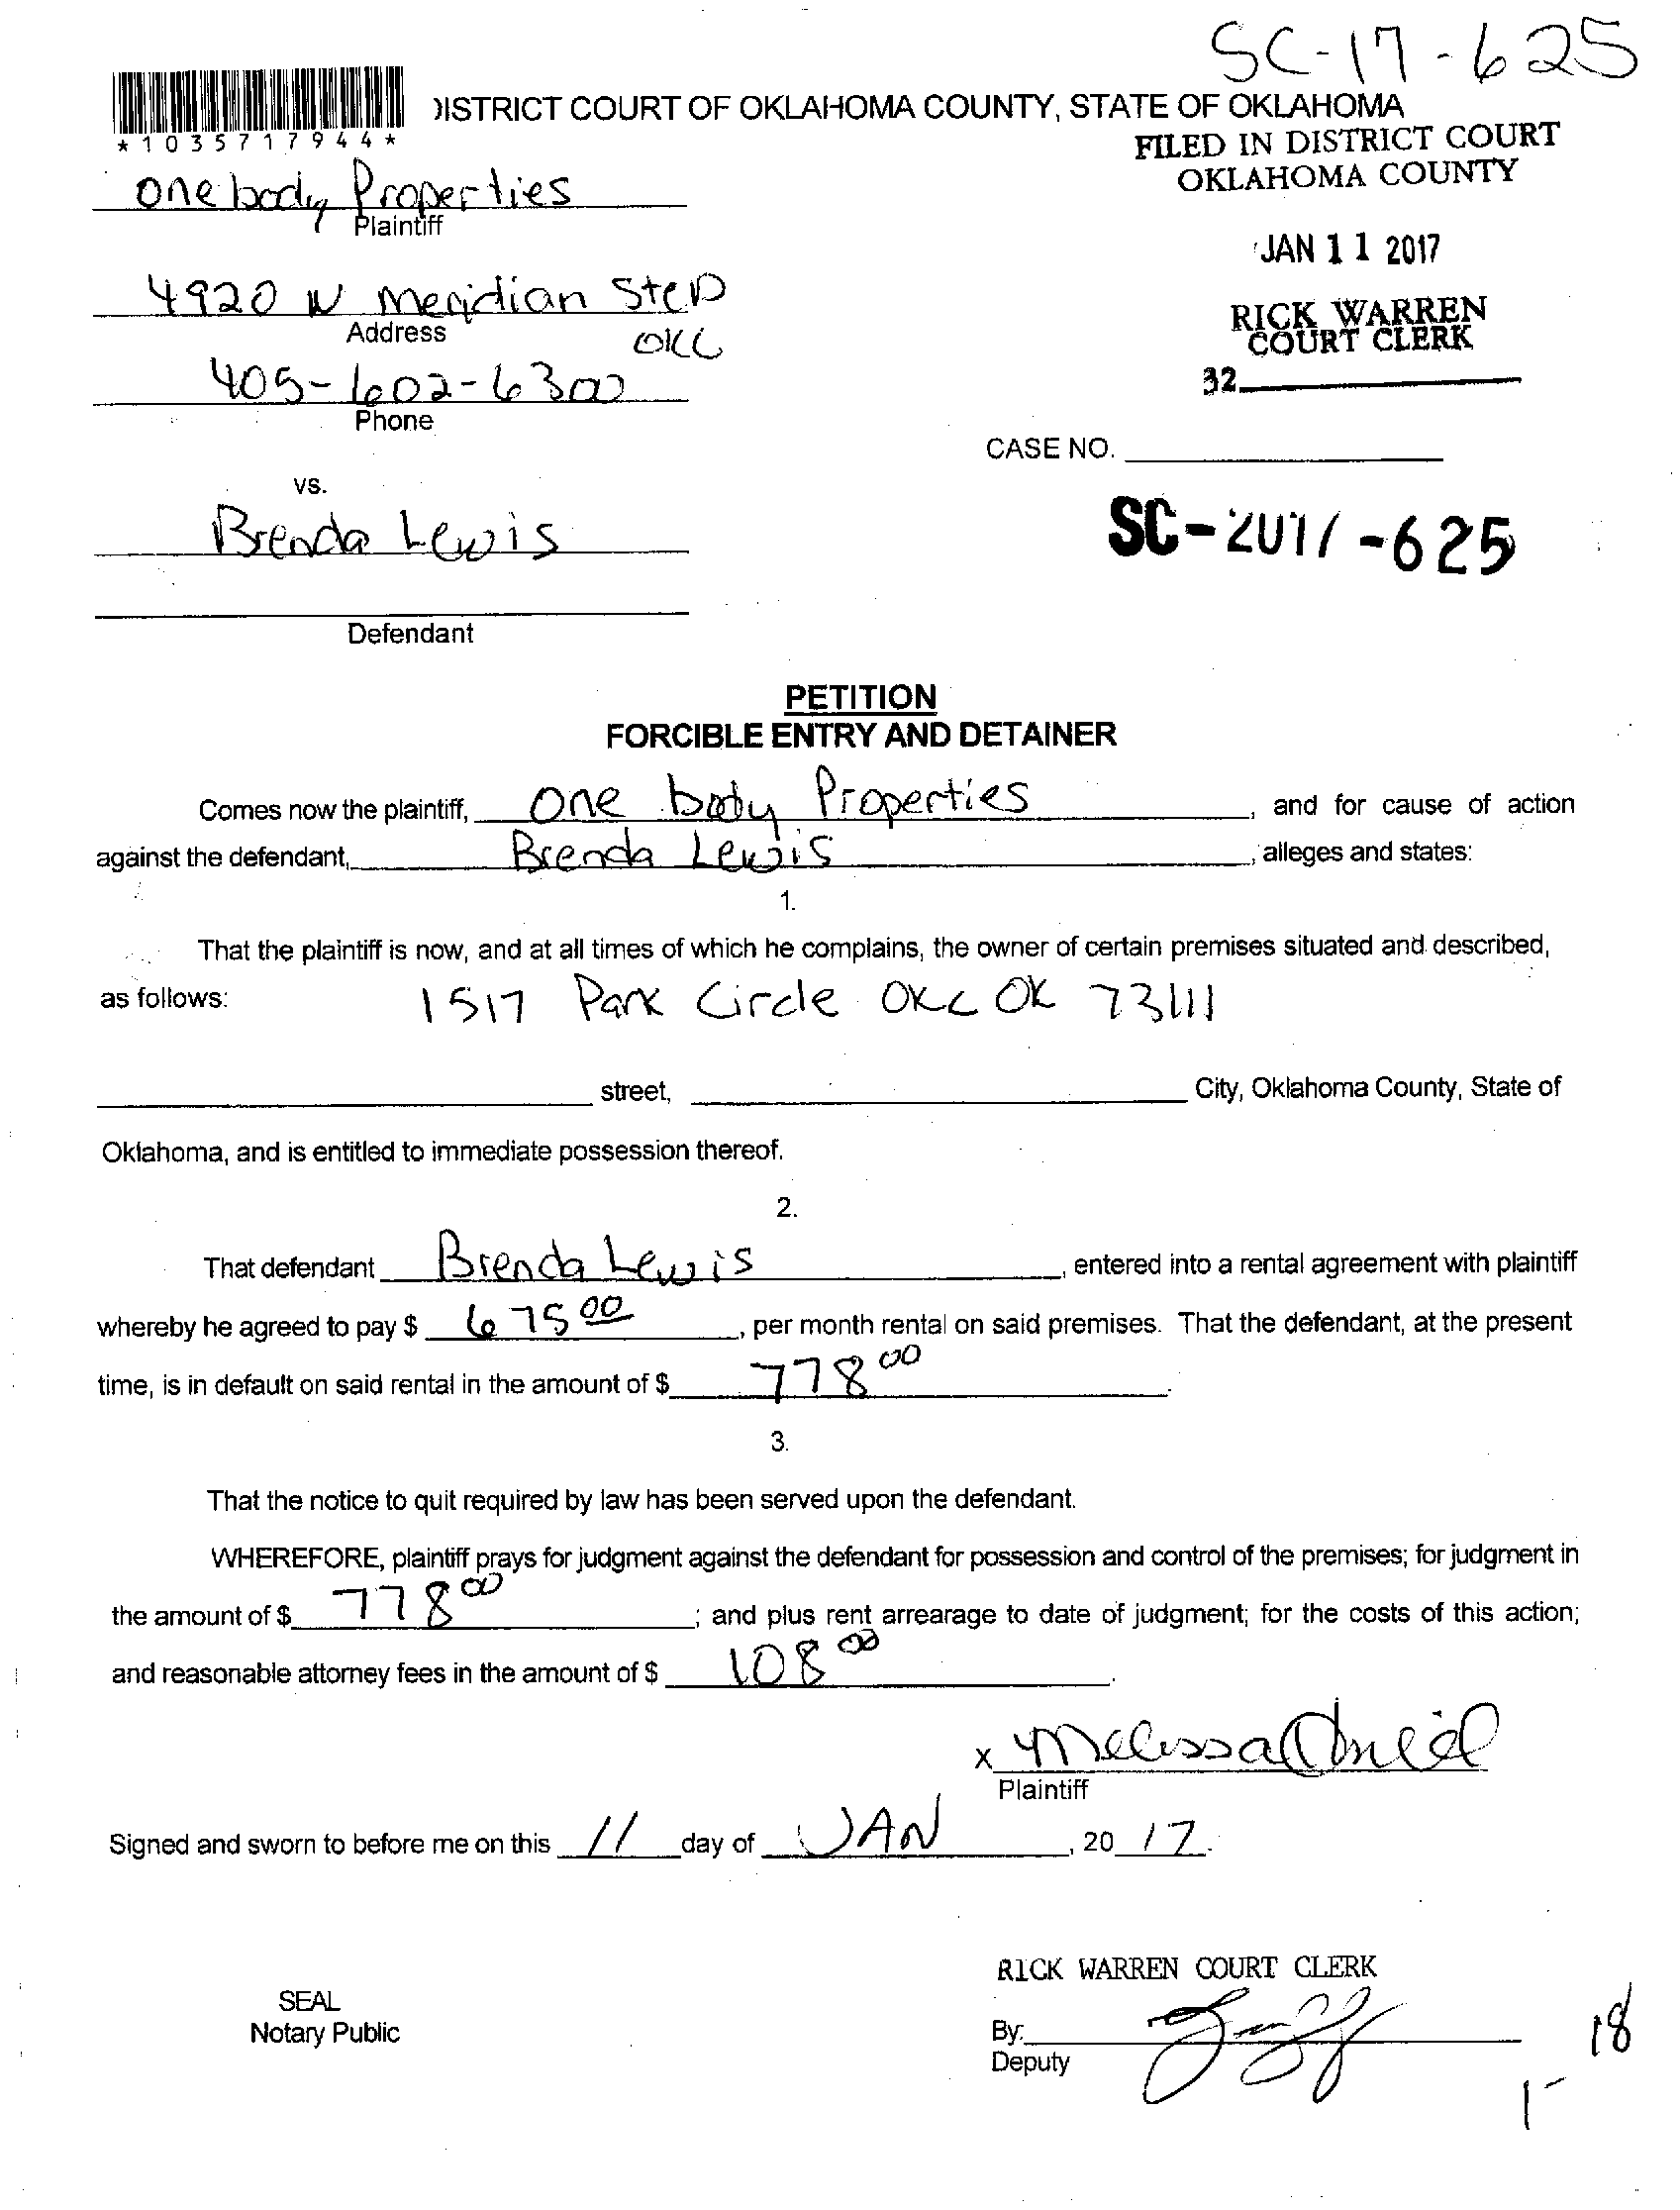 SC-17-625
DISTRICT COURT OF OKLAHOMA COUNTY, STATE OF OKLAHOMA
*1035717944*
FILED IN DISTRICT COURT
OKLAHOMA COUNTY
One body Properties
Plaintiff
JAN 11 2017
4920 N Meridian Ste D
Address
OKC
RICK WARREN
COURT CLERK
405-602-6300
Phone
32
CASE NO.
vs.
Brenda Lewis
SC-2017-625
Defendant
PETITION
FORCIBLE ENTRY AND DETAINER
Comes now the plaintiff, One body Properties, and for cause of action
against the defendant, Brenda Lewis, alleges and states:
1.
That the plaintiff is now, and at all times of which he complains, the owner of certain premises situated and described,
as follows: 1517 Park Circle OKC OK 73111
street, City, Oklahoma County, State of
Oklahoma, and is entitled to immediate possession thereof.
2.
That defendant Brenda Lewis, entered into a rental agreement with plaintiff
whereby he agreed to pay $ 675 00, per month rental on said premises. That the defendant, at the present
time, is in default on said rental in the amount of $ 778 00.
3.
That the notice to quit required by law has been served upon the defendant.
WHEREFORE, plaintiff prays for judgment against the defendant for possession and control of the premises; for judgment in
the amount of $ 778 00; and plus rent arrearage to date of judgment; for the costs of this action;
and reasonable attorney fees in the amount of $ 108 00.
x Melissa Oneal
Plaintiff
Signed and sworn to before me on this 11 day of JAN, 20 17.
RICK WARREN COURT CLERK
SEAL
Notary Public
By:
Deputy
18
1-